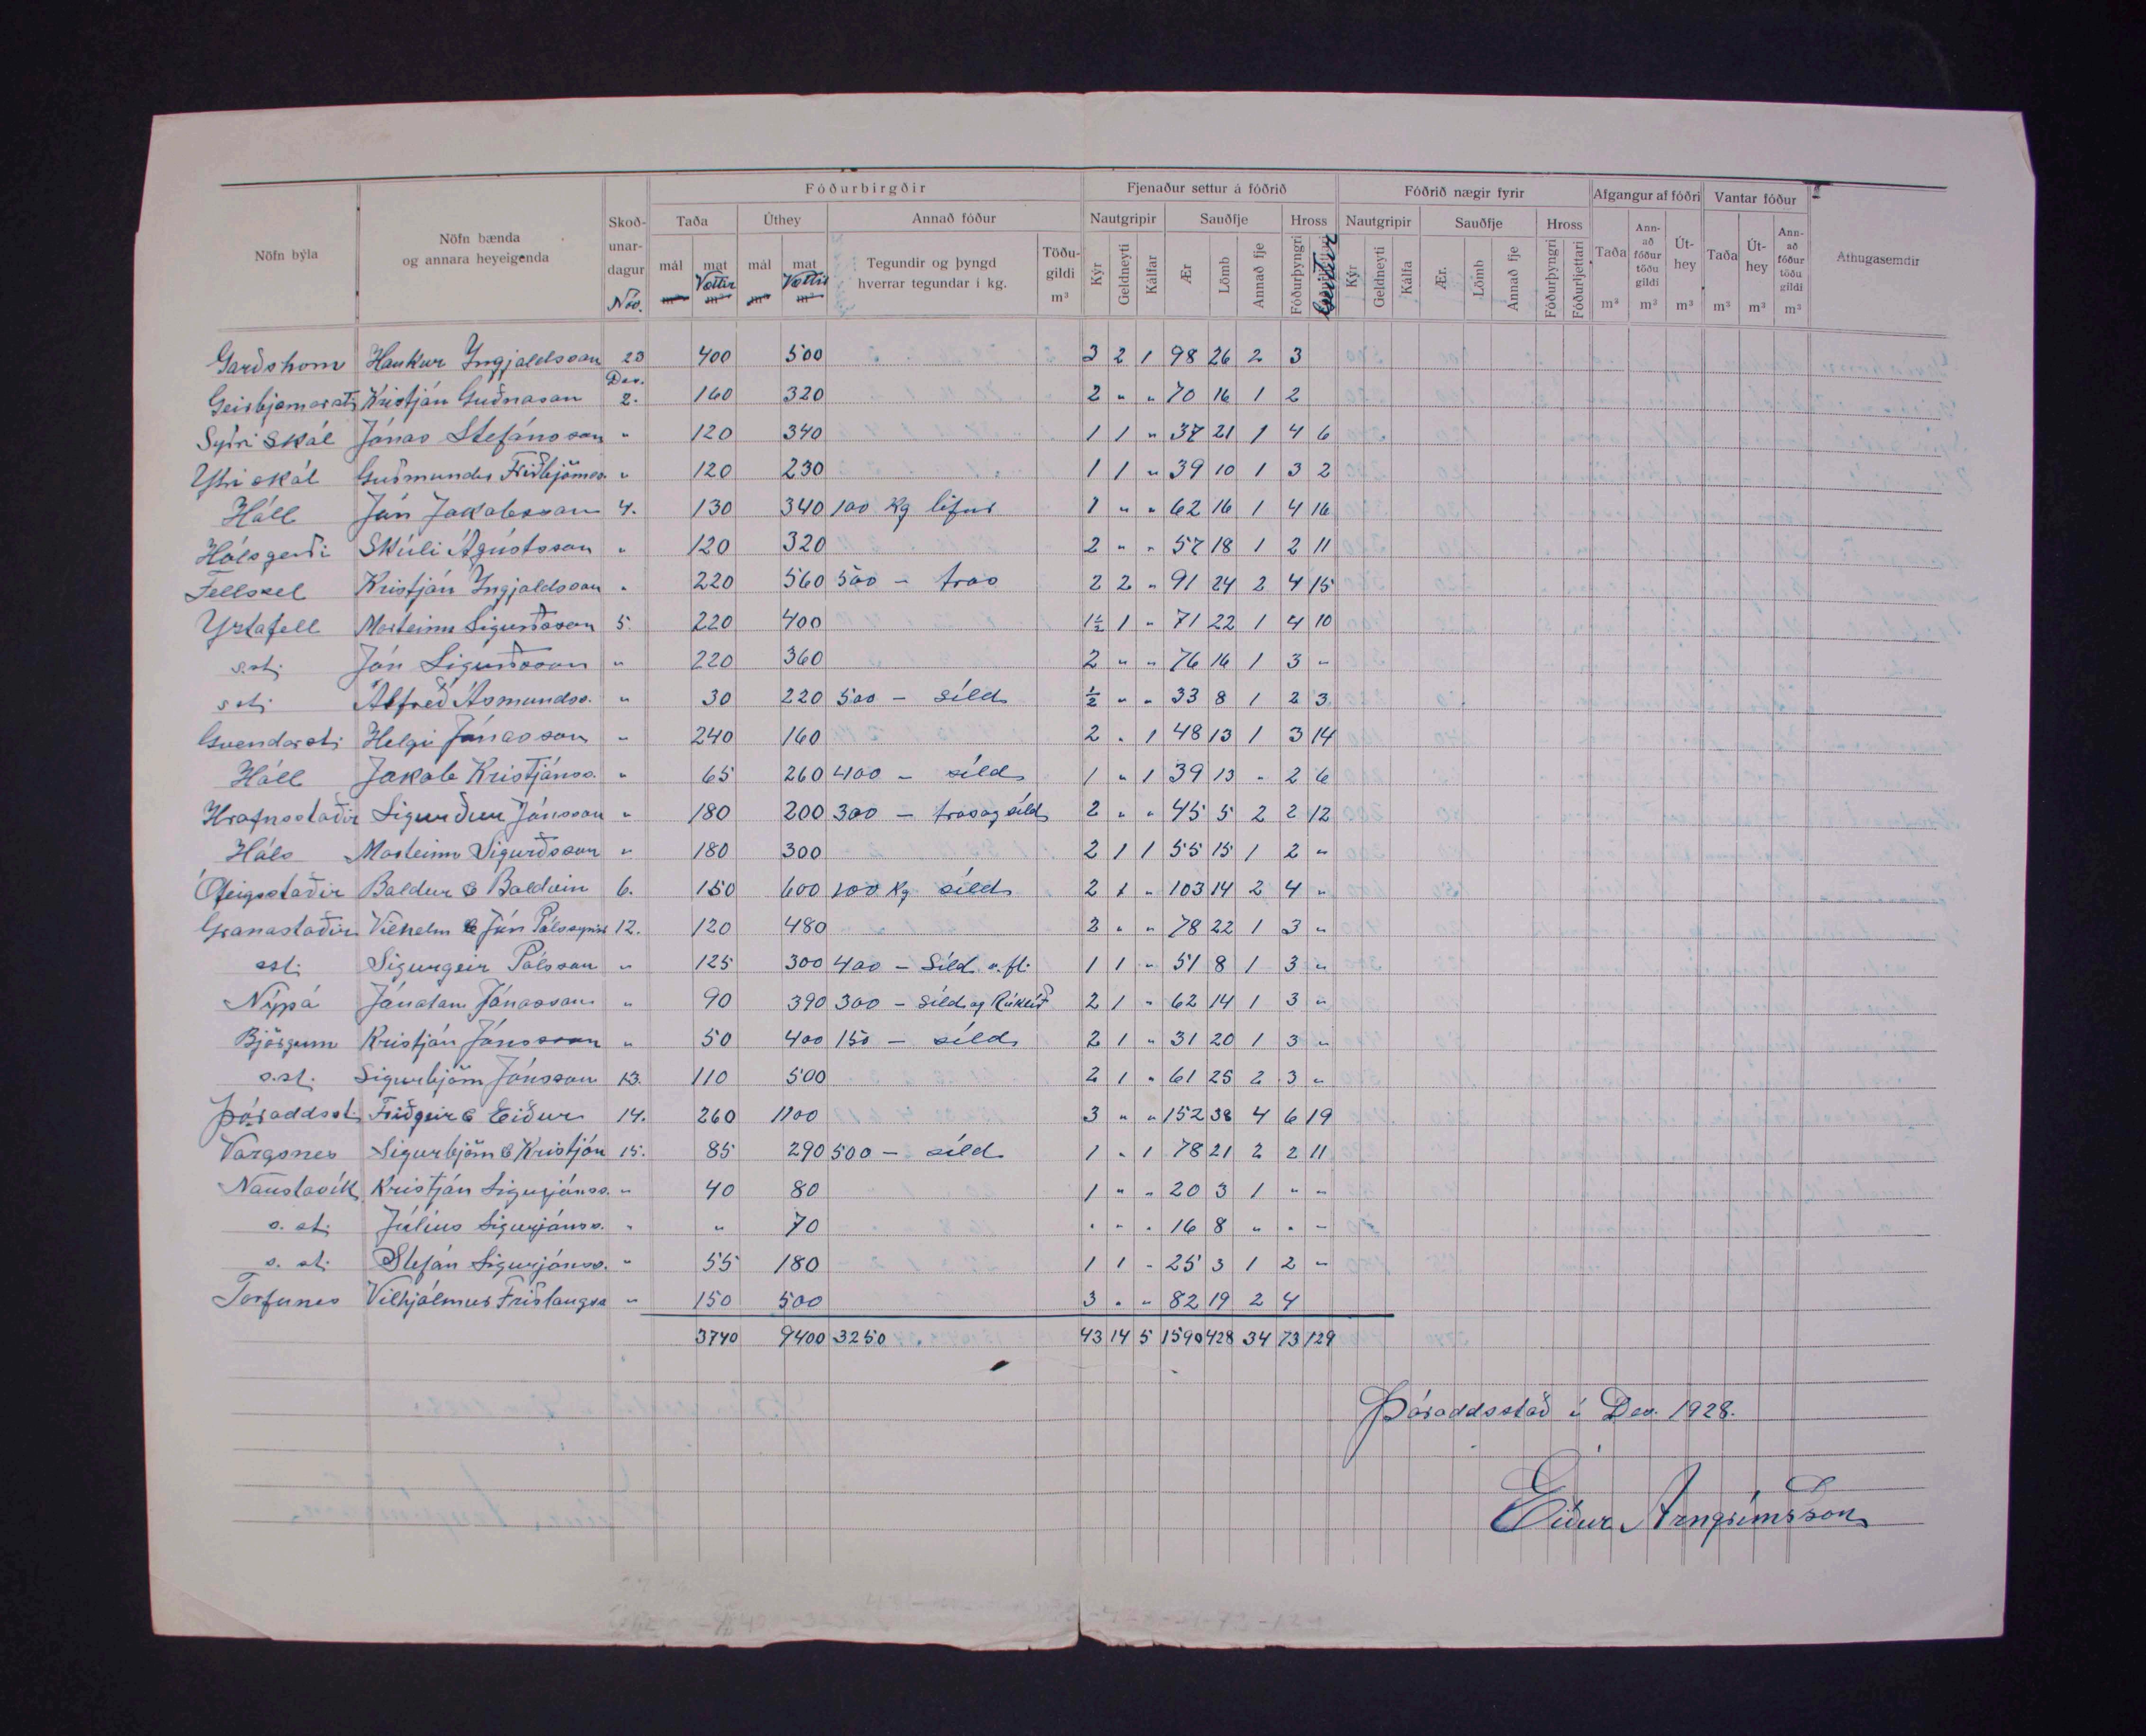 Fóðurbirgðir Fjenaður settur á fóðrið Fóðrið nægir fyrir Afgangur af fóðri Vantar fóður
Nöfn býla Nöfn bænda og annara heyeigenda Skoðunardagur Nóv. Taða Úthey Annað fóður Nautgripir Sauðfje Hross Nautgripir Sauðfje Hross Taða Annað fóður töðu gildi Úthey Taða Úthey Annað fóður töðu gildi Athugasemdir
mál mat Vættir mál mat Vættir Tegundir og þyngd hverrar tegundar í kg. Töðugildi m³ Kýr Geldneyti Kálfar Ær Lömb Annað fje Fóðurþyngri Geitur Kýr Geldneyti Kálfa Ær. Lömb Annað fje Fóðurþyngri Fóðurljettari m³ m³ m³ m³ m³ m³
m³ m³ m³ m³
Garðshorn Haukur Ingjaldsson 23 400 500 3 2 1 98 26 2 3
Geirbjarnarst. Kristján Guðnason Des. 2. 160 320 2 " " 70 16 1 2
Syðri Skál Jónas Stefánsson " 120 340 1 1 " 37 21 1 4 6
Ytri skál Guðmundur Friðbjörnss. " 120 230 1 1 " 39 10 1 3 2
Háll Jón Jakobsson 4. 130 340 100 kg lifur 1 " " 62 16 1 4 16
Hálsgerði Skúli Ágústsson " 120 320 2 " " 57 18 1 2 11
Fellssel Kristján Ingjaldsson " 220 560 500 — tros 2 2 " 91 24 2 4 15
Yztafell Marteinn Sigurðsson 5. 220 400 1½ 1 " 71 22 1 4 10
s.st. Jón Sigurðsson " 220 360 2 " " 76 16 1 3 "
s st. Alfreð Ásmundss. " 30 220 500 — síld ½ " " 33 8 1 2 3
Gvendarst. Helgi Jónasson " 240 160 2 " 1 48 13 1 3 14
Háll Jakob Kristjánss. " 65 260 400 — síld 1 " 1 39 13 " 2 6
Hrafnsstaðir Sigurður Jónsson " 180 200 300 — tros og síld 2 " " 45 5 2 2 12
Háls Marteinn Sigurðsson " 180 300 2 1 1 55 15 1 2 "
Ófeigsstaðir Baldur & Baldvin 6. 150 600 100 kg síld 2 1 " 103 14 2 4 "
Granastaðir Vilhelm & Jón Pálssynir 12. 120 480 2 " " 78 22 1 3 "
sst. Sigurgeir Pálsson " 125 300 400 — Síld o.fl. 1 1 " 51 8 1 3 "
Nýpá Jónatan Jónasson " 90 390 300 — síld og Rúklýð 2 1 " 62 14 1 3 "
Björgum Kristján Jónsson " 50 400 150 — síld 2 1 " 31 20 1 3 "
s.st. Sigurbjörn Jónsson 13. 110 500 2 1 " 61 25 2 3 "
Þóroddsst. Friðgeir & Eiður 14. 260 1100 3 " " 152 38 4 6 19
Vargsnes Sigurbjörn & Kristján 15. 85 290 500 — síld 1 " 1 78 21 2 2 11
Naustavík Kristján Sigurjónss. " 40 80 1 " " 20 3 1 " "
s. st. Júlíus Sigurjónss. " " 70 " " " 16 8 " " "
s. st. Stefán Sigurjónss. " 55 180 1 1 " 25 3 1 2 "
Torfunes Vilhjálmur Friðlaugss " 150 500 3 " " 82 19 2 4
3740 9400 3250 43 14 5 1590 428 34 73 129
Þóroddsstað í Des. 1928.
Eiður Arngrímsson